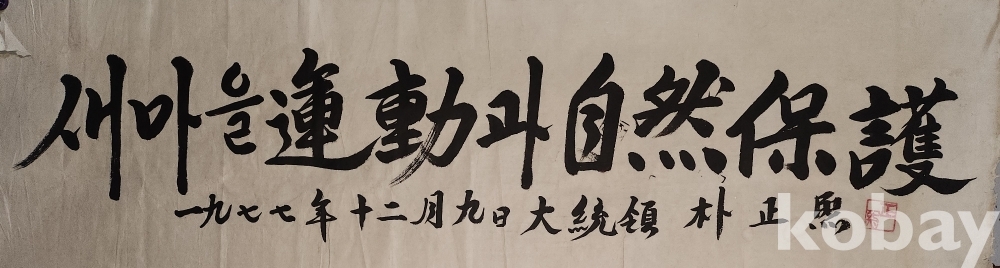 새마을運動과自然保護
一九七七年十二月九日 大統領 朴正熙
kobay